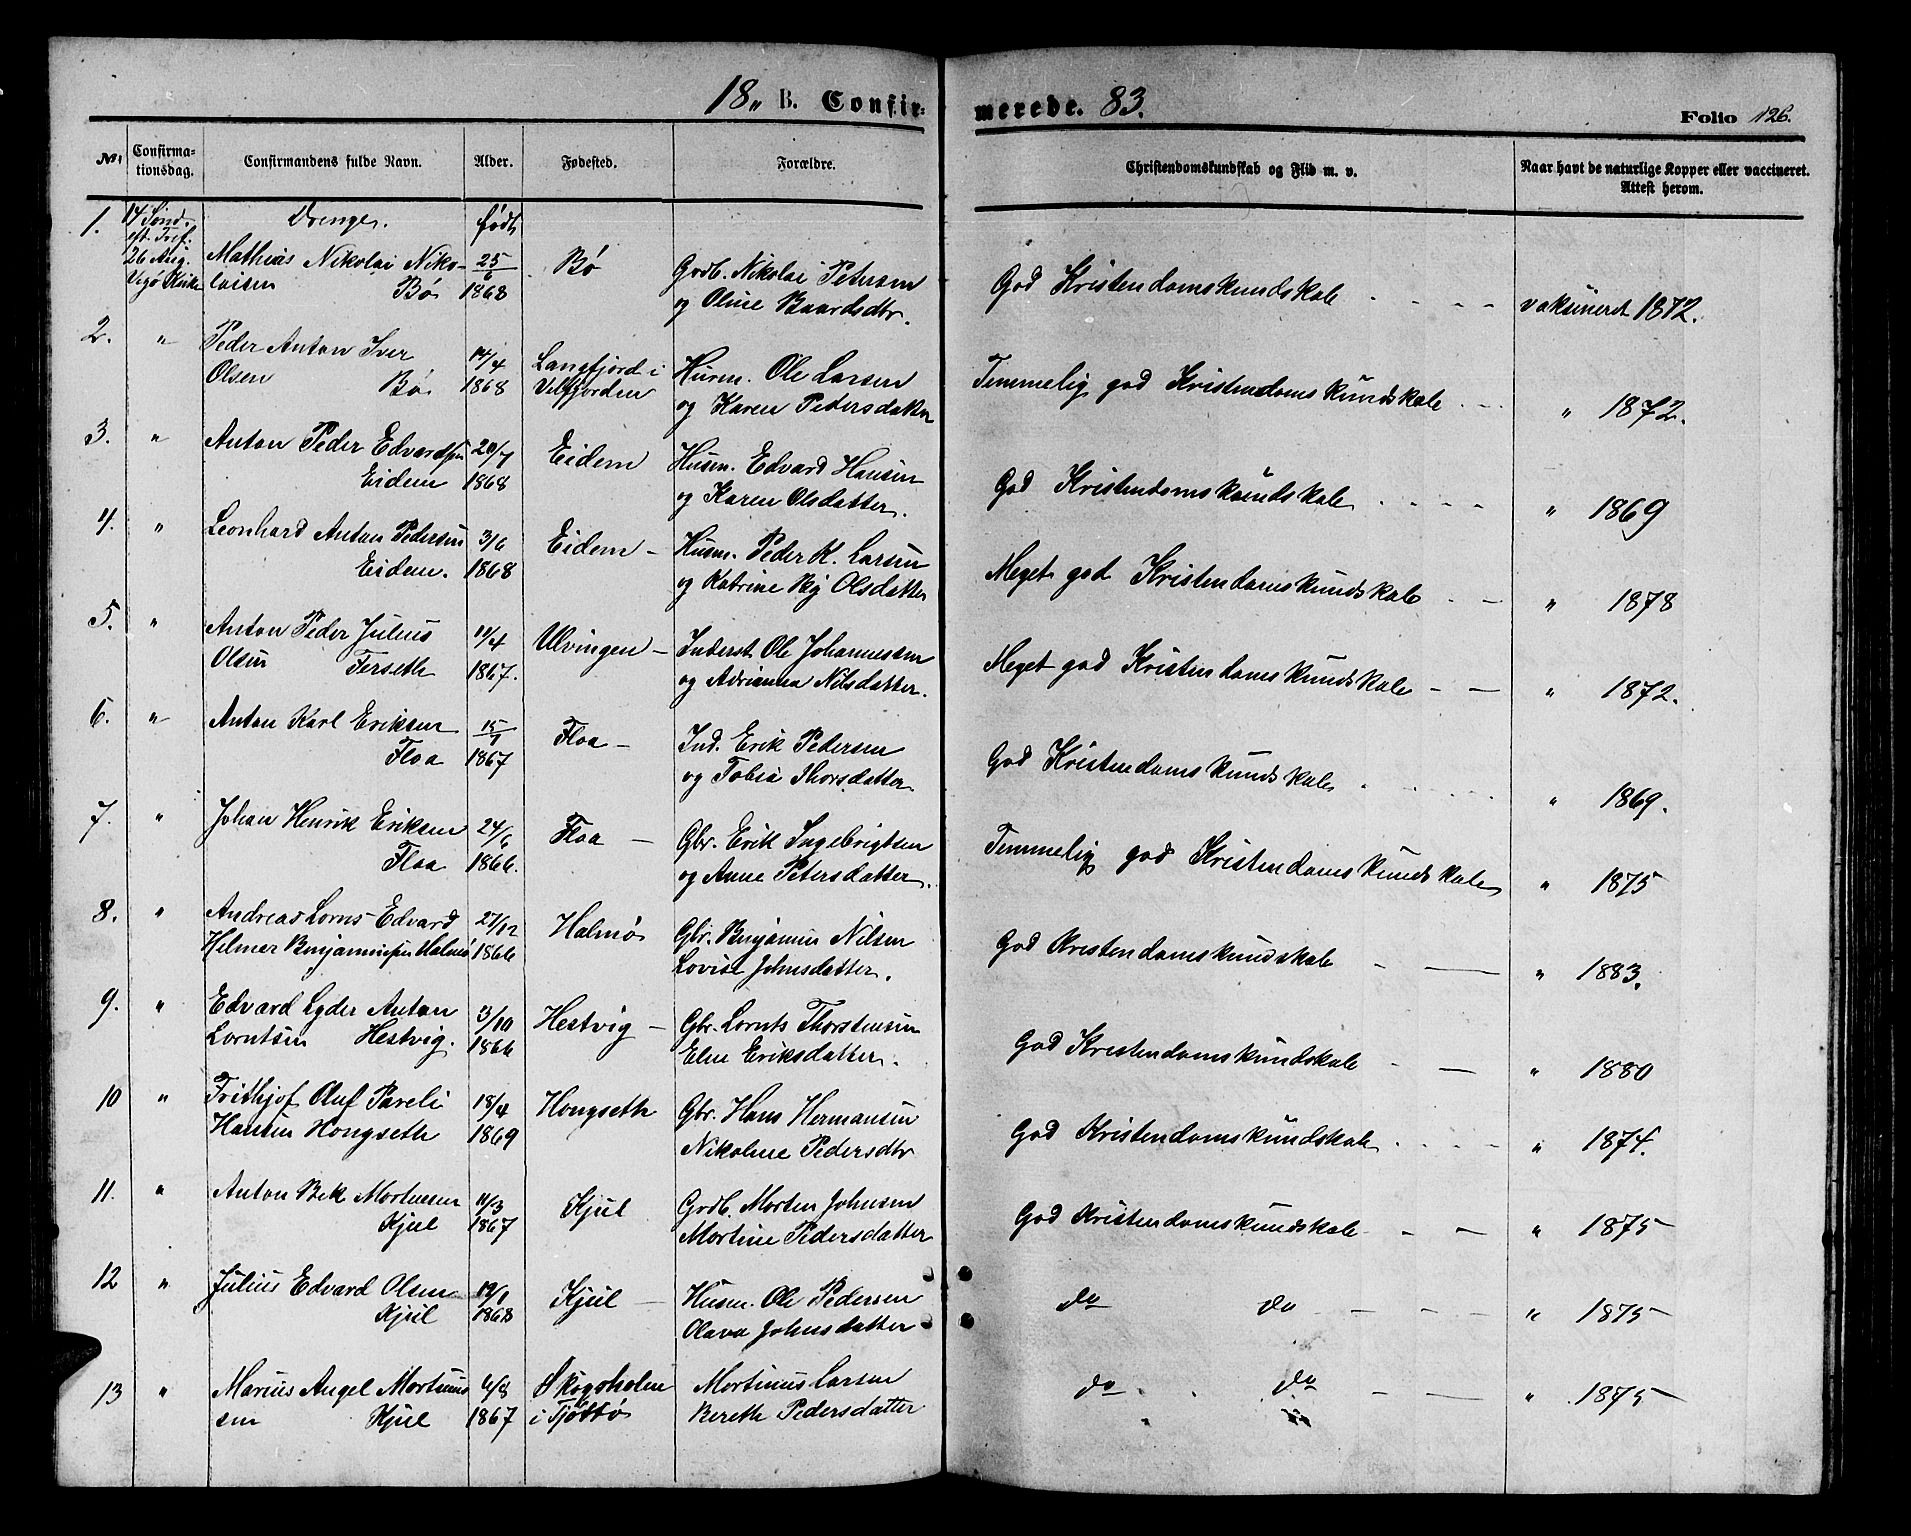 18„ B. Confir-
merede. 83.
Folio 126.
№
Confirma-
tionsdag.
Confirmandens fulde Navn.
Alder.
Fødested.
Forældre.
Christendomskundskab og Flid m. v.
Naar havt de naturlige Kopper eller vaccineret.
Attest herom.
1. 14 Sønd. Drenge. født
eft. Tref.
26 Aug. Mathias Nikolai Niko- 25/6 Bø Grdb. Nikolai Petersen God Kristendomskundskab vaksineret 1872.
Vegø Kirke laisen Bø 1868 og Oline Baardsdtr.
2. „ Peder Anton Iver 14/4 Langfjord i Husm. Ole Larsen Temmelig god Kristendomskundskab „ 1872.
Olsen Bø 1868 Velfjorden og Karen Pedersdatter
3. „ Anton Peder Edvardsen 20/7 Eidem Husm. Edvard Hansen God Kristendomskundskab „ 1869
Eidem 1868 og Karen Olsdatter.
4. „ Leonhard Anton Pedersen 3/6 Eidem – Husm. Peder K. Larsen Meget god Kristendomskundskab „ 1878
Eidem. 1868 og Katrine Olsdatter
5. „ Anton Peder Julius 11/4 Ulvingen – Inderst. Ole Johannessen Meget god Kristendomskundskab – – „ 1872.
Olsen Forseth 1867. og Adrianna Nilsdatter.
6. „ Anton Karl Eriksen 15/1 Floa – Ind. Erik Pedersen God Kristendomskundskab „ 1869.
Floa 1867 og Tobia Thorsdatter
7. „ Johan Henrik Eriksen 24/6 Floa – Gbr. Erik Ingebrigtsen Temmelig god Kristendomskundskab „ 1875
Floa 1866. og Anne Petersdatter.
8. „ Andreas Lorns Edvard 27/12 Halmø Gbr. Benjamin Nilsen God Kristendomskundskab – – „ 1883.
Helmer Benjaminsen Halmø 1866 Lovise Johnsdatter.
9. „ Edvard Lyder Anton 3/10 Hestvig – Gbr. Lornts Thorstensen God Kristendomskundskab – – „ 1880
Lorntsen Hestvig. 1866 Elen Eriksdatter.
10 „ Frithjof Oluf Pareli 18/4 Hongseth Gbr. Hans Hermansen God Kristendomskundskab „ 1874.
Hansen Hongseth 1869 Nikoline Pedersdtr
11. „ Anton Bek Mortensen 11/3 Kjul Grdb. Morten Johnsen God Kristendomskundskab – – „ 1875
Kjul 1867 Mortine Pedersdatter
12 „ Julius Edvard Olsen 19/1 Kjul – Husm. Ole Pedersen do do – – – „ 1875
Kjul 1868 Olava Johnsdatter
13 „ Marius Angel Mortinus 6/8 Skogsholmen Mortinus Larsen do do – – „ 1875
sen Kjul 1867 i Tjøttø Bereth Pedersdatter